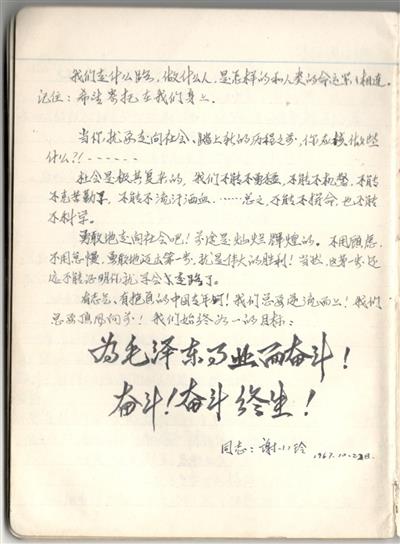 我们走什么路，做什么人，是怎样的和人类的命运紧相连。
记住：希望寄托在我们身上。
当你就要走向社会、踏上新的历程之前，你应该做些
什么？！------
社会是极其复杂的，我们不能不勇猛，不能不机警，不能
不克苦勤劳，不能不流汗洒血……总之，不能不拼命，也不能
不科学。
勇敢地走向社会吧！前途是灿烂辉煌的。不用顾虑，
不用恐惧，勇敢地迈出第一步，就是伟大的胜利！当然，这第一步还
远不能证明你就学会了走路了。
有志气、有抱负的中国青年啊！我们总要逆流而上！我们
总要顶风向前！我们始终如一的目标：
为毛泽东的事业而奋斗！
奋斗！奋斗终生！
同志：谢小玲
1967.10.22日.